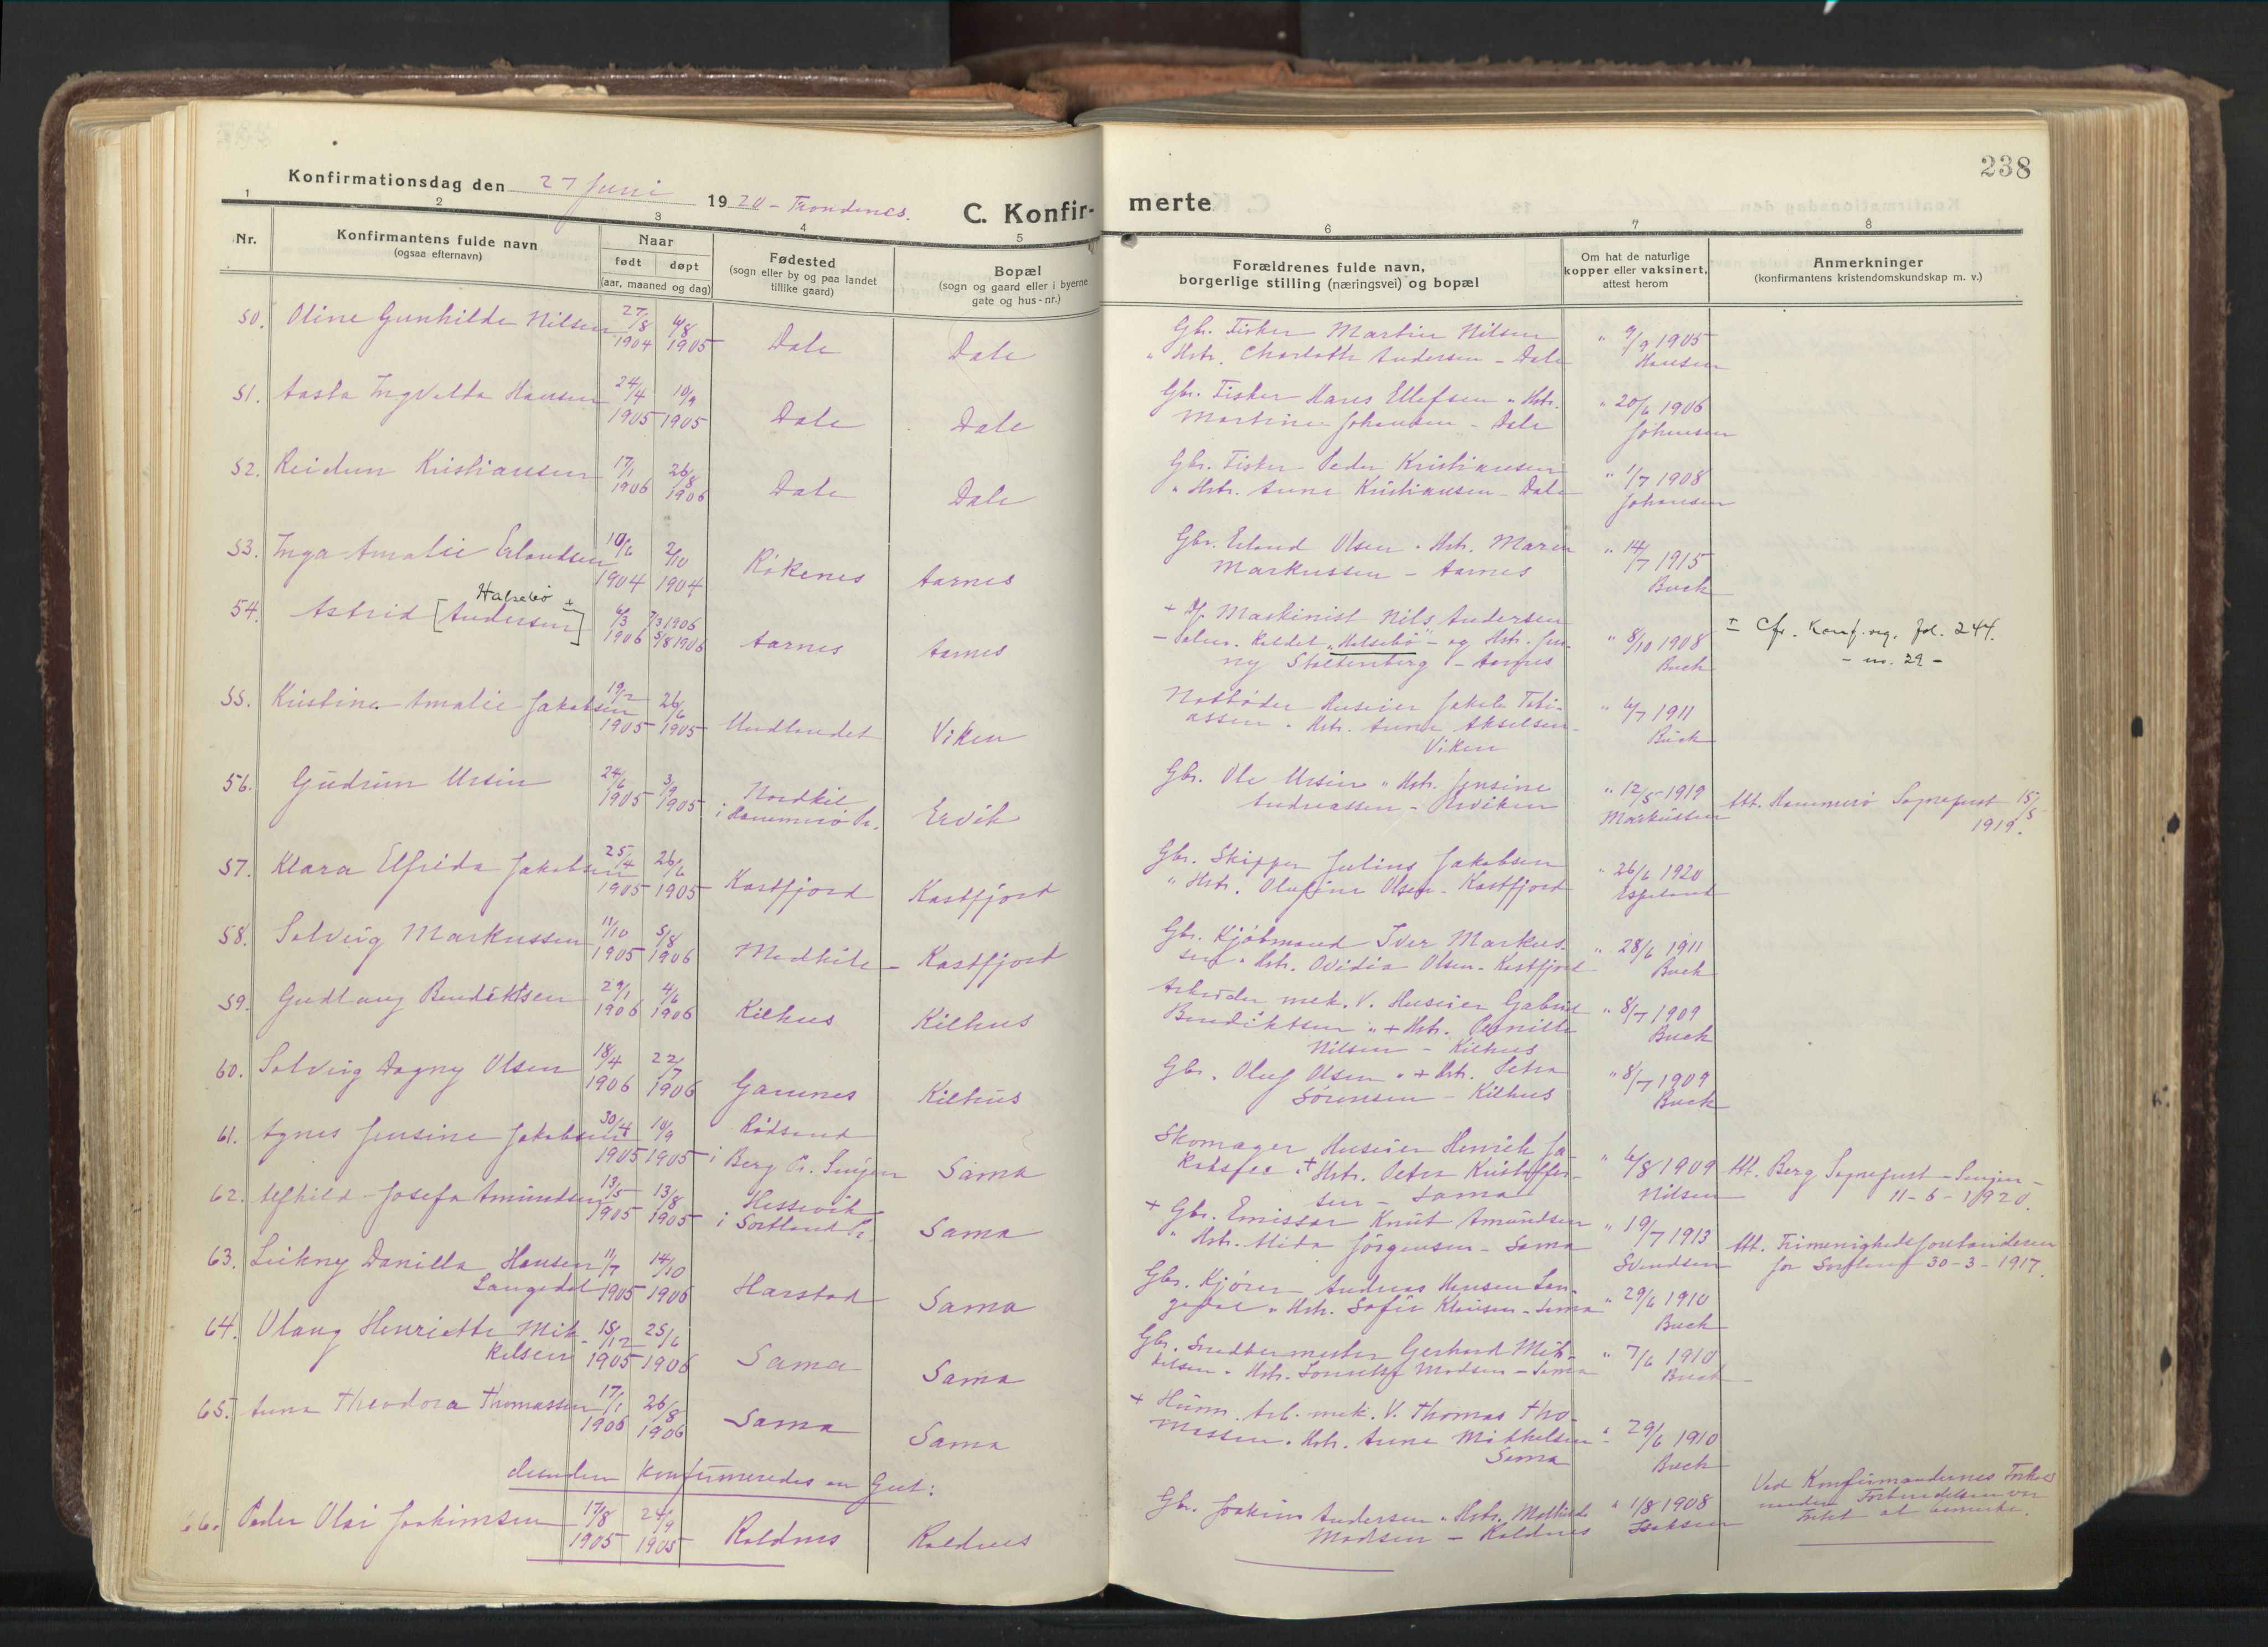 238
Konfirmationsdag den 27 Juni 1920 - Trondenes.
C. Konfirmerte
1 2 3 4 5 6 7 8
Nr.
Konfirmantens fulde navn
(ogsaa efternavn)
Naar
født døpt
(aar, maaned og dag)
Fødested
(sogn eller by og paa landet
tillike gaard)
Bopæl
(sogn og gaard eller i byerne
gate og hus-nr.)
Forældrenes fulde navn,
borgerlige stilling (næringsvei) og bopæl
Om hat de naturlige
kopper eller vaksinert,
attest herom
Anmerkninger
(konfirmantens kristendomskundskap m. v.)
50. Oline Gunhilde Nilsen 27/8 1904 6/8 1905 Dale Dale
Gbr. Fisker Martin Nilsen
" Hstr. Charlotte Andersen - Dale
" 9/9 1905
Hansen
51. Aasta Ingvalda Hansen 24/4 1905 10/9 1905 Dale Dale
Gbr. Fisker Hans Ellefsen " Hstr.
Martine Johansen - Dale
" 20/6 1906
Johansen
52. Reidun Kristiansen 17/1 1906 26/8 1906 Dale Dale
Gbr. Fisker Peder Kristiansen
" Hstr. Anne Kristiansen - Dale
" 1/7 1908
Johansen
53. Inga Amalie Erlandsen 10/6 1904 2/10 1904 Røkenes Aarnes
Gbr. Erland Olsen " Hstr. Maren
Markussen - Aarnes
" 14/7 1915
Buck
Halsebø ±
54. Astrid [Andersen] 6/3 1906 7/3 1906 5/8 1906 Aarnes Aarnes
+ Maskinist Nils Andersen
kaldet "Halsebø" - og Hstr. Jen-
ny Stoltenberg - Aarnes
" 8/10 1908
Buck
± Cfr. Konf. reg. fol. 244.
- nr. 29 -
55. Kristine Amalie Jakobsen 19/2 1905 26/6 1905 Undlandet Viken
Notbøder Huseier Jakob Tobi-
assen " Hstr. Anna Akselsen -
Viken
" 6/7 1911
Buck
56. Gudrun Ursin 24/6 1905 3/9 1905 Nordkil
i Hammerø Pr. Ervik
Gbr. Ole Ursin " Hstr. Jensine
Andreassen - Erviken
" 12/5 1919
Markussen
Att. Hammerø Sogneprest 15/5
1919.
57. Klara Elfrida Jakobsen 25/4 1905 26/6 1905 Kastfjord Kastfjord
Gbr. Skipper Julius Jakobsen
" Hstr. Olufine Olsen - Kastfjord
" 26/6 1920
Espeland
58. Solveig Markussen 11/10 1905 5/8 1906 Medkile - Kastfjord
Gbr. Kjøbmand Iver Markus-
sen " Hstr. Ovidia Olsen - Kastfjord
" 28/6 1911
Buck
59. Gudlaug Bendiktsen 29/1 1906 4/6 1906 Kilhus Kilhus
Arbeider mek. V. Huseier Gabriel
Bendiktsen " + Hstr. Pernille
Nilsen - Kilhus
" 8/7 1909
Buck
60. Solveig Dagny Olsen 18/4 1906 22/7 1906 Gamnes Kilhus
Gbr. Oluf Olsen " + Hstr. Petra
Sørensen - Kilhus
" 8/7 1909
Buck
61. Agnes Jensine Jakobsen 30/4 1905 10/9 1905 Rødsand
i Berg Pr. Senjen Sama
Skomager Huseier Henrik Ja-
kobsen " + Hstr. Petra Kristoffer-
sen - Sama
" 6/8 1909
Nilsen
Att. Berg Sogneprest - Senjen -
11-6-1920.
62. Alfhild Josefa Amundsen 13/5 1905 13/8 1905 Hessevik
i Sortland Pr. Sama
+ Gbr. Emissær Knut Amundsen
" Hstr. Alida Jørgensen - Sama
" 19/7 1913
Svendsen
Att. Frimenighedsforstanderen
for Sortland 30-3-1917.
63. Leikny Danilla Hansen
Langedal 11/7 1905 14/10 1906 Harstad Sama
Gbr. Kjører Andreas Hansen Lan-
gedal " Hstr. Sofie Klausen - Sama
" 29/6 1910
Buck
64. Olaug Henriette Mik-
kelsen 15/12 1905 25/6 1906 Sama Sama
Gbr. Snedkermester Gerhard Mik-
kelsen " Hstr. Madsen - Sama
" 7/6 1910
Buck
65. Anna Theodora Thomassen 17/1 1906 26/8 1906 Sama Sama
+ Husm. Arb. mek. V. Thomas Tho-
massen " Hstr. Anne Mikkelsen -
Sama
" 29/6 1910
Buck
desuden konfirmeredes en Gut:
66. Peder Olai Joakimsen 17/8 1905 24/9 1905 Koldnes Koldnes
Gbr. Joakim Andersen " Hstr. Mathilde
Madsen - Koldnes
" 1/8 1908
Isaksen
Ved Konfirmandernes Forhold
under Forberedelsen var
Intet at bemerke.